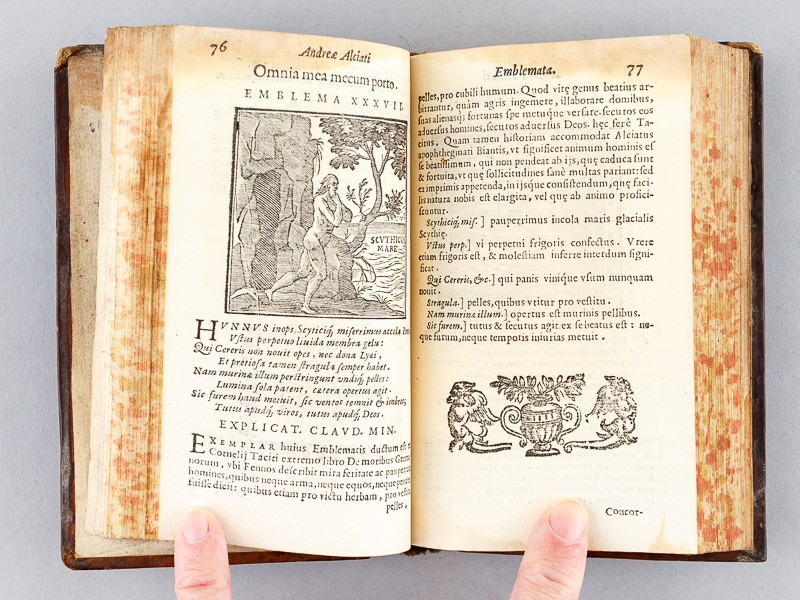 76
Andreæ Alciati
Omnia mea mecum porto.
EMBLEMA XXXVII.
SCYTHICŨ
MARE
HVNNVS inops, Scyticiq́; miserrimus accola
Vstus perpetuo liuida membra gelu:
Qui Cereris non nouit opes, nec dona Lyæi,
Et pretiosa tamen stragula semper habet.
Nam murinæ illum perstringunt vndiq́; pelles:
Lumina sola patent, cætera opertus agit.
Sic furem haud metuit, sic ventos temnit & imbres;
Tutus apudq́; viros, tutus apudq́; Deos.
EXPLICAT. CLAVD. MIN.
EXEMPLAR huius Emblematis ductum est
Cornelij Taciti extremo libro De moribus
norum, vbi Fennos describit mira feritate ac
homines, quibus neque arma, neque equos, neque
fuisse dicit: quibus etiam pro victu herbam, pro
pelles,
Emblemata.
77
pelles, pro cubili humum. Quod vitę genus beatius ar-
bitrantur, quàm agris ingemere, illaborare domibus,
suas alienasq́; fortunas spe metuque versare. securos eos
aduersus homines, securos aduersus Deos. hęc ferè Ta-
citus. Quam tamen historiam accommodat Alciatus
apophthegmati Biantis, vt significet animum hominis es
se beatissimum, qui non pendeat ab ijs, quę caduca sunt
& fortuita, vt quę sollicitudines sanè multas pariant: sed
ea imprimis appetenda, in ijsque consistendum, quę faci-
lis natura nobis est elargita, vel quę ab animo profici-
scuntur.
Scythiciq́; mis.] pauperrimus incola maris glacialis
Scythię.
Vstus perp.] vi perpetui frigoris confectus. Vrere
etiam frigoris est, & molestiam inferre interdum signi-
ficat.
Qui Cereris, &c.] qui panis vinique vsum nunquam
nouit.
Stragula.] pelles, quibus vtitur pro vestitu.
Nam murina illum.] opertus est murinis pellibus.
Sic furem.] tutus & securus agit. ex se beatus est: ne-
que futum, neque temporis iniurias metuit.
Concor-